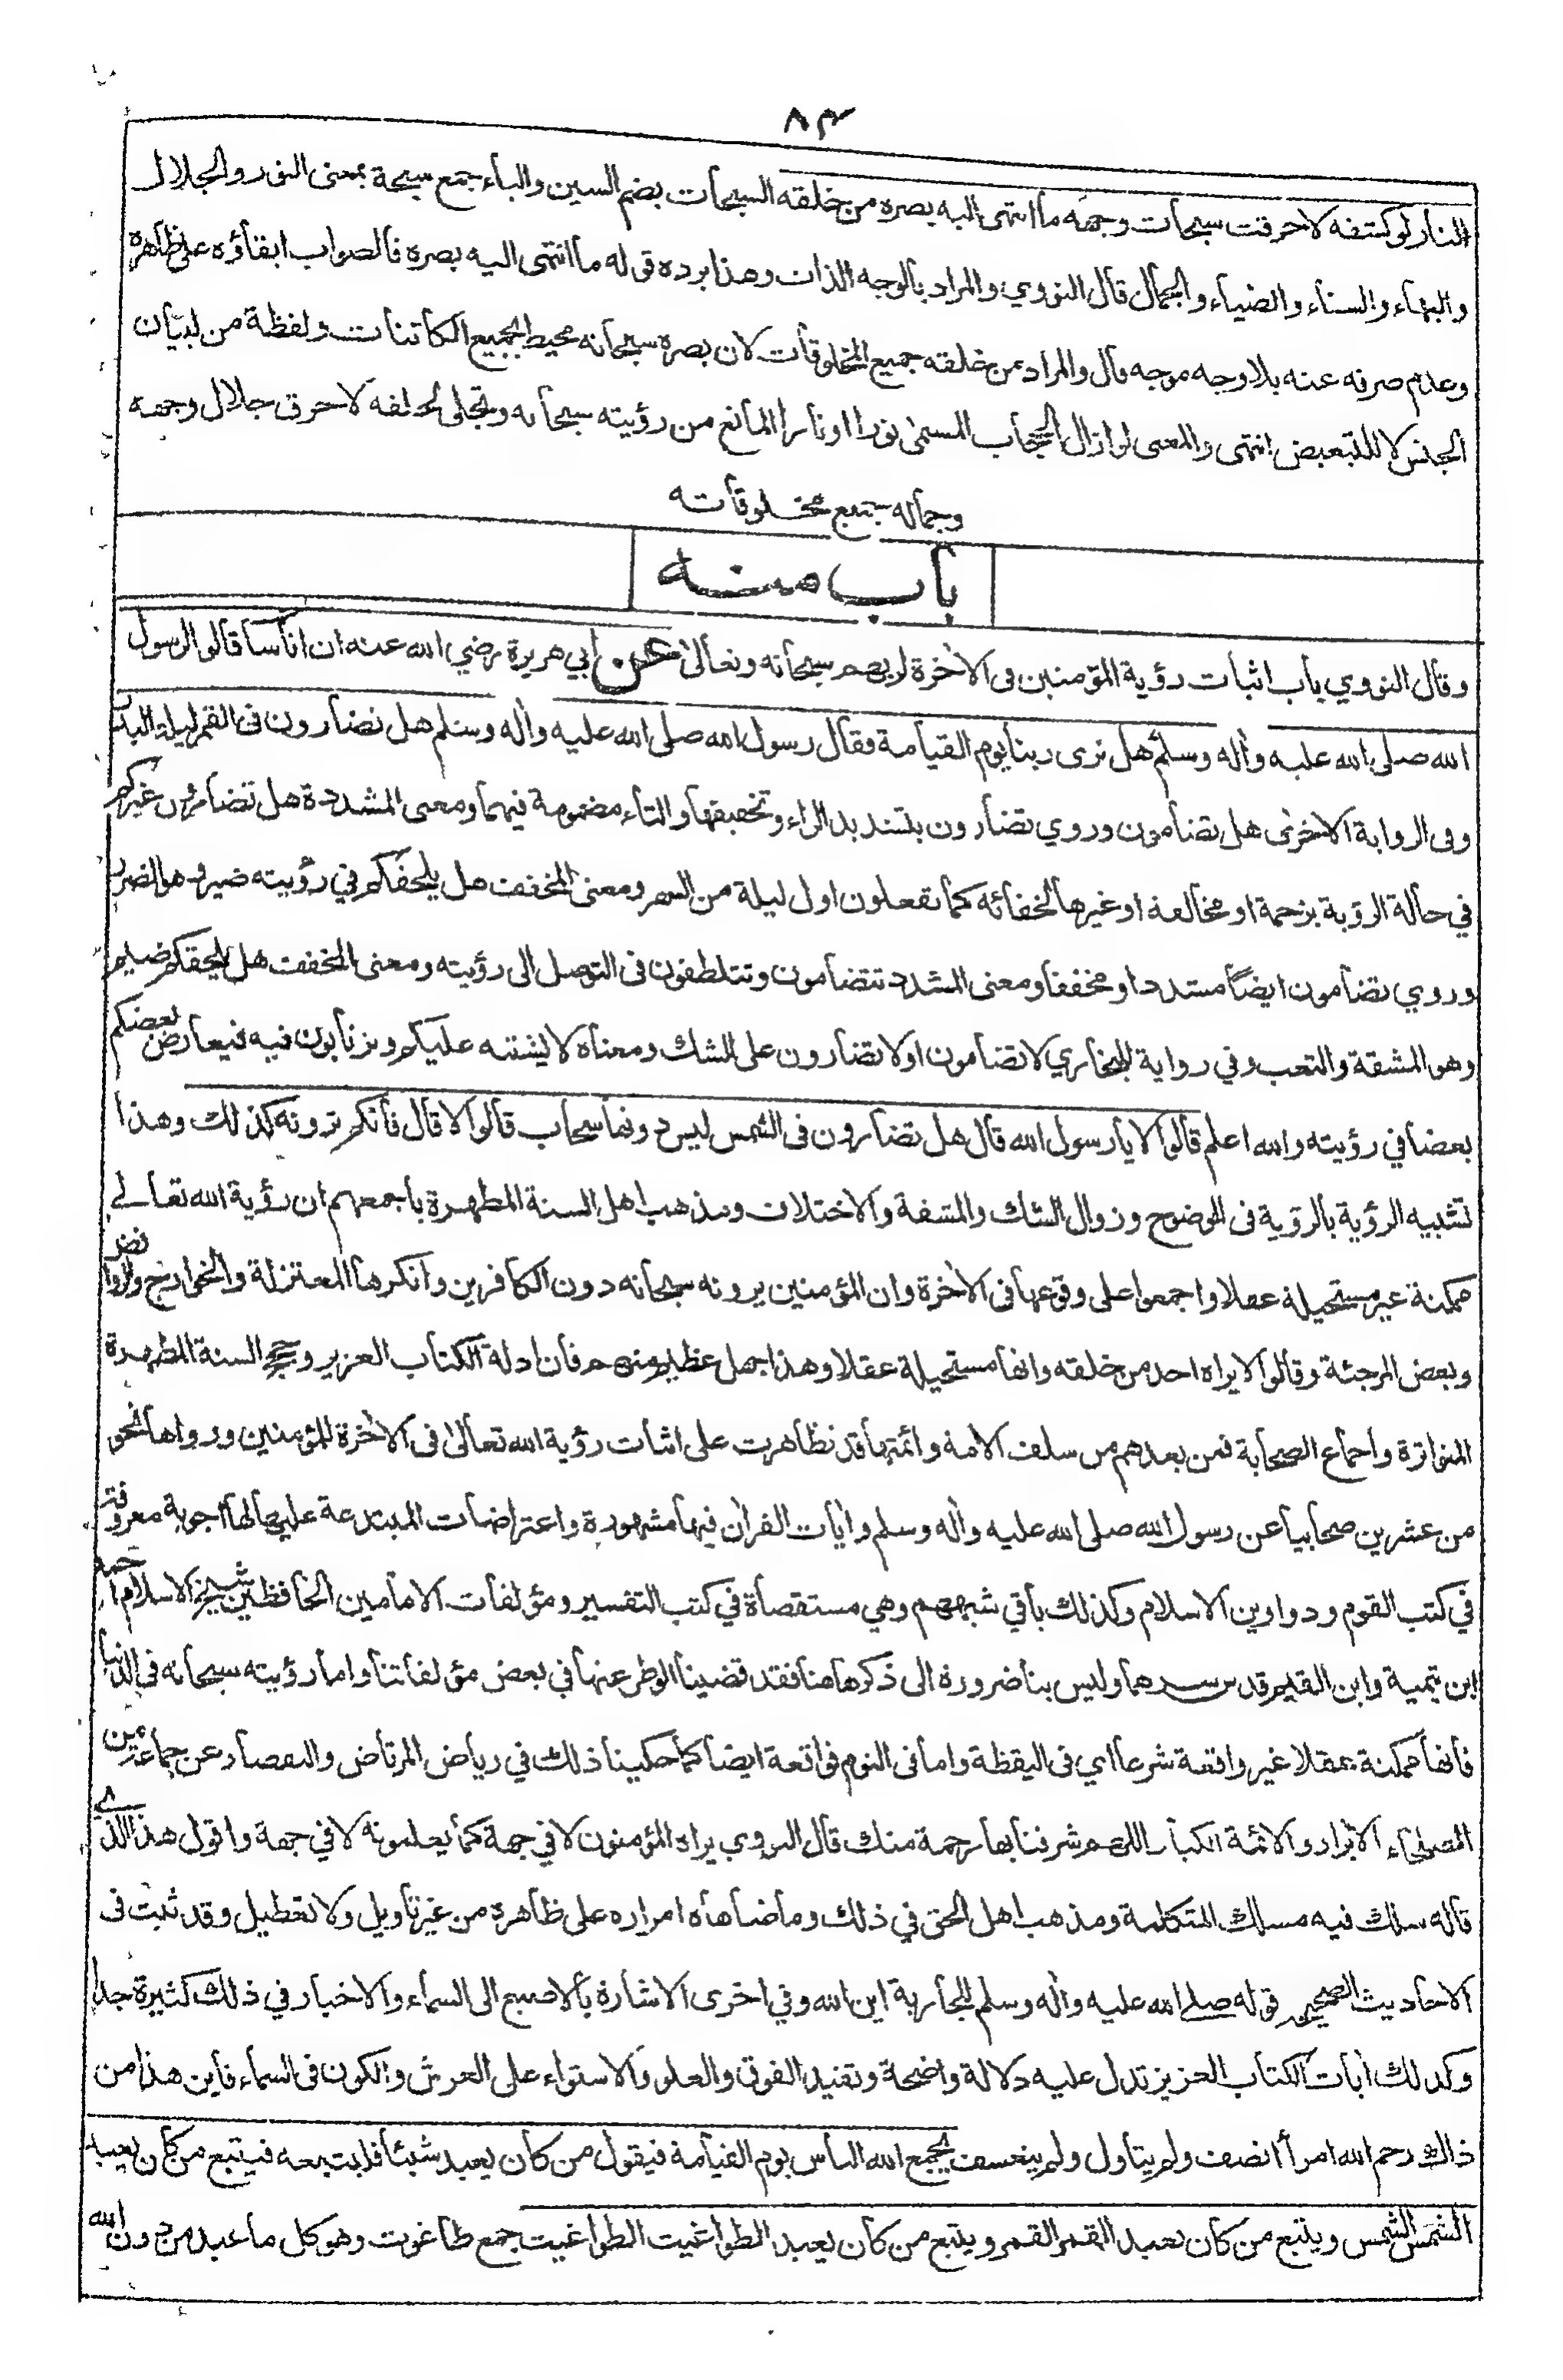 ٨٣
النار لو كشفه لاحرقت سبحات وجهه ما انتهى اليه بصره من خلقه السبحات بضم السين والباء جمع سبحة بمعنى النور والجلال
والبهاء والسناء والضياء والجمال قال النووي والمراد بالوجه الذات وهذا يرده قوله ما انتهى اليه بصره فالصواب ابقاؤه على ظاهره
وعدم صرفه عنه بلا وجه موجه قال والمراد بمن خلقه جميع المخلوقات لان بصره سبحانه محيط بجميع الكائنات ولفظة من لبيان
الجنس لا للتبعيض انتهى والمعنى لو ازال الحجاب المسمى نورا او نارا المانع من رؤيته سبحانه وتجلى لخلقه لاحرق جلال وجهه
وجماله جميع مخلوقاته
باب منه
وقال النووي باب اثبات رؤية المؤمنين فى الأخرة لربهم سبحانه وتعالى عن أبي هريرة رضي الله عنه ان اناسا قالوا لرسول
الله صلى الله عليه وأله وسلم هل نرى ربنا يوم القيامة فقال رسول الله صلى الله عليه وأله وسلم هل تضارون فى القمر ليلة البدر
وفى الرواية الاخرى هل تضامون وروي تضارون بتشديد الراء وتخفيفها والتاء مضمومة فيهما ومعنى المشددة هل تضارون غيركم
في حالة الرؤية بزحمة او مخالفة او غيرها لخفائه كما تفعلون اول ليلة من الشهر ومعنى المخفف هل يلحقكم في رؤيته ضير وهو الضرر
وروي تضامون ايضا مشددا ومخففا ومعنى المشدد تتضامون وتتلطفون فى التوصل الى رؤيته ومعنى المخفف هل يلحقكم ضيم
وهو المشقة والتعب وفي رواية للبخاري لا تضامون او لا تضارون على الشك ومعناه لا يشتبه عليكم وترتابون فيه فيعارض بعضكم
بعضا في رؤيته والله اعلم قالوا لا يا رسول الله قال هل تضارون فى الشمس ليس دونها سحاب قالوا لا قال فانكم ترونه كذلك وهذا
تشبيه الرؤية بالرؤية فى الوضوح وزوال الشك والمشقة والاختلاف ومذهب اهل السنة المطهرة باجمعهم ان رؤية الله تعالى
ممكنة غير مستحيلة عقلا واجمعوا على وقوعها فى الأخرة وان المؤمنين يرونه سبحانه دون الكافرين وانكرها المعتزلة والخوارج والروافض
وبعض المرجئة وقالوا لا يراه احد من خلقه وانها مستحيلة عقلا وهذا جهل عظيم منهم فان ادلة الكتاب العزيز وحجج السنة المطهرة
المتواترة واجماع الصحابة فمن بعدهم من سلف الامة وائمتها قد تظاهرت على اثبات رؤية الله تعالى فى الأخرة للمؤمنين ورواها نحو
من عشرين صحابيا عن رسول الله صلى الله عليه وأله وسلم وأيات القرأن فيها مشهورة واعتراضات المبتدعة عليها لها اجوبة معروفة
في كتب القوم ودواوين الاسلام وكذلك باقي شبههم وهي مستقصاة في كتب التفسير ومؤلفات الامامين الحافظين شيخ الاسلام احمد
ابن تيمية وابن القيم قدس سرهما وليس بنا ضرورة الى ذكرها هنا فقد قضينا الوطر عنها في بعض مؤلفاتنا واما رؤيته سبحانه فى الدنيا
فانها ممكنة عقلا غير واقعة شرعا اي فى اليقظة واما فى النوم فواقعة ايضا كما حكينا ذلك في رياض المرتاض والتقصار عن جماعة من
الصلحاء الابرار والائمة الكبار اللهم شرفنا بها رحمة منك قال النووي يراه المؤمنون لا في جهة كما يعلمونه لا في جهة واقول هذا الذي
قاله سلك فيه مسلك المتكلمة ومذهب اهل الحق في ذلك وما ضاهاه امراره على ظاهره من غير تأويل ولا تعطيل وقد ثبت فى
الاحاديث الصحيحة قوله صلى الله عليه وأله وسلم للجارية اين الله وفي اخرى الاشارة بالاصبع الى السماء والاخبار في ذلك كثيرة جدا
وكذلك أيات الكتاب العزيز تدل عليه دلالة واضحة وتفيد الفوق والعلو والاستواء على العرش والكون فى السماء فاين هذا من
ذاك رحم الله امرأ انصف ولم يتأول ولم يتعسف يجمع الله الناس يوم القيامة فيقول من كان يعبد شيئا فليتبعه فيتبع من كان يعبد
الشمس الشمس ويتبع من كان يعبد القمر القمر ويتبع من كان يعبد الطواغيت الطواغيت جمع طاغوت وهو كل ما عبد من دون الله